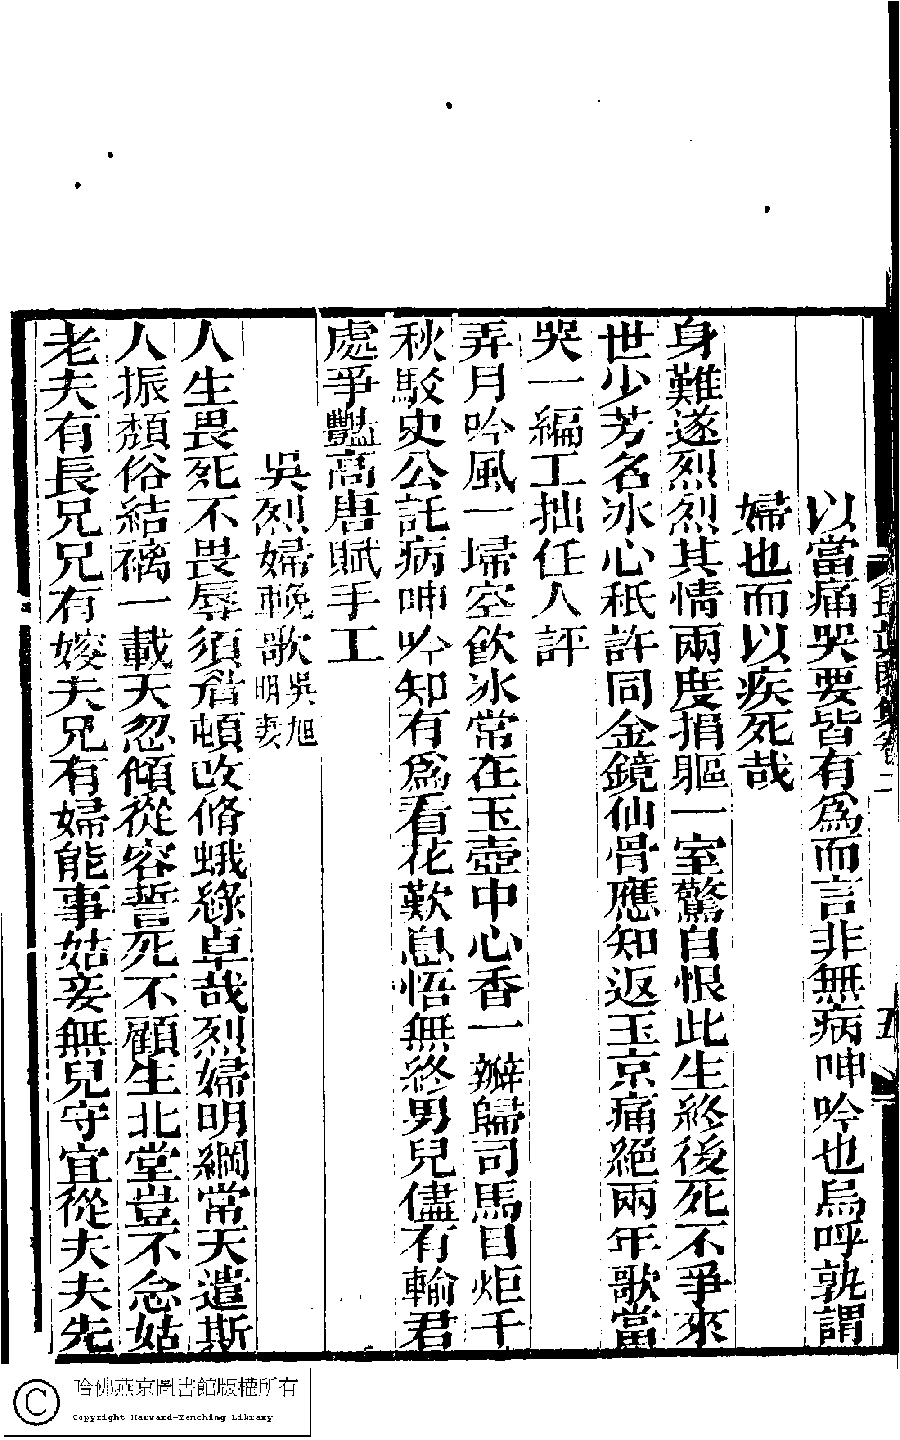 以當痛哭要皆有為而言非無病呻吟也烏呼孰謂
婦也而以疾死哉
身難遂烈烈其情兩度捐軀一室驚自恨此生終後死不爭來
世少芳名冰心秖許同金鏡仙骨應知返玉京痛絕兩年歌當
哭一編工拙任人評
弄月吟風一埽空飲冰常在玉壺中心香一瓣歸司馬目炬千
秋駁史公託病呻吟知有為看花歎息悟無終男兒儘有輸君
處爭豔高唐賦手工
吳烈婦輓歌吳旭明妻
人生畏死不畏辱須眉頓改脩蛾綠卓哉烈婦明綱常天遣斯
人振頹俗結褵一載天忽傾從容誓死不顧生北堂豈不念姑
老夫有長兄兄有嫂夫兄有婦能事姑妾無兒守宜從夫夫先
卷二
五
哈佛燕京圖書館版權所有
Copyright Harvard-Yenching Library